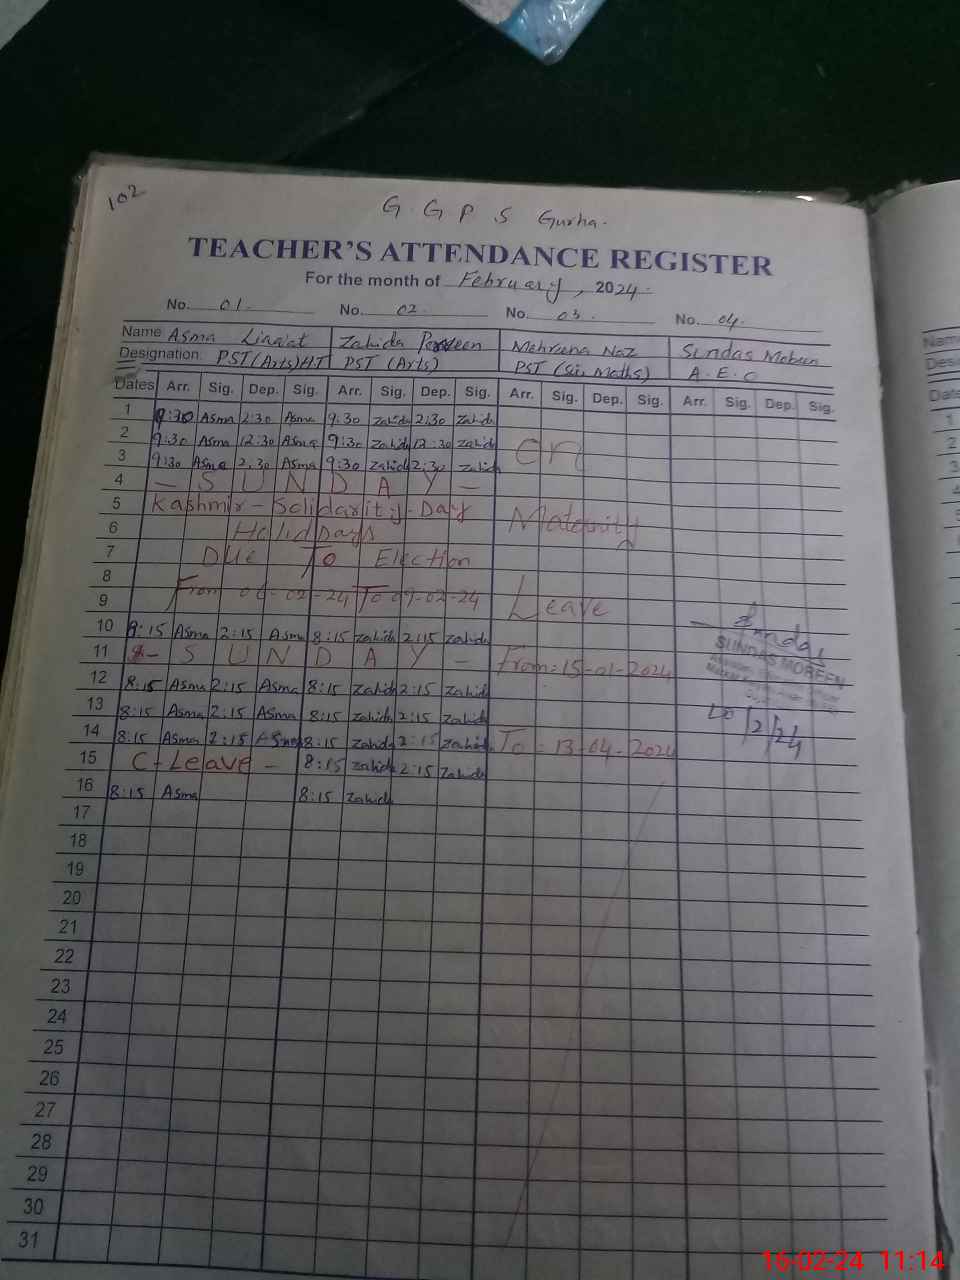 102
G. G P S Gurha.
TEACHER'S ATTENDANCE REGISTER
For the month of February, 2024.
No. 01. No. 02. No. 03. No. 04.
Name Asma Liaqat Zahida Parveen Mehreena Naz Sundas Mobeen
Designation: PST (Arts) HT PST (Arts) PST (Sci, Maths) A.E.O
Dates Arr. Sig. Dep. Sig. Arr. Sig. Dep. Sig. Arr. Sig. Dep. Sig. Arr. Sig. Dep. Sig.
1 9:30 Asma 2:30 Asma 9:30 Zahida 2:30 Zahida
2 9:30 Asma 12:30 Asma 9:30 Zahida 12:30 Zahida on
3 9:30 Asma 2:30 Asma 9:30 Zahida 2:30 Zahida
4 - S U N D A Y -
5 Kashmir - Solidarity - Day Maternity
6 Holidays
7 Due To Election
8 From 06-02-24 To 09-02-24
9 Leave
10 9:15 Asma 2:15 Asma 8:15 Zahida 2:15 Zahida
11 - S U N D A Y - From: 15-01-2024 SUNDAS MOBEEN
12 8:15 Asma 2:15 Asma 8:15 Zahida 2:15 Zahida
13 8:15 Asma 2:15 Asma 8:15 Zahida 2:15 Zahida
14 8:15 Asma 2:15 Asma 8:15 Zahida 2:15 Zahida To: 13-04-2024
15 C-Leave - 8:15 Zahida 2:15 Zahida
16 8:15 Asma 8:15 Zahida
17
18
19
20
21
22
23
24
25
26
27
28
29
30
31
Name
Date
1
2
3
16-02-24 11:14